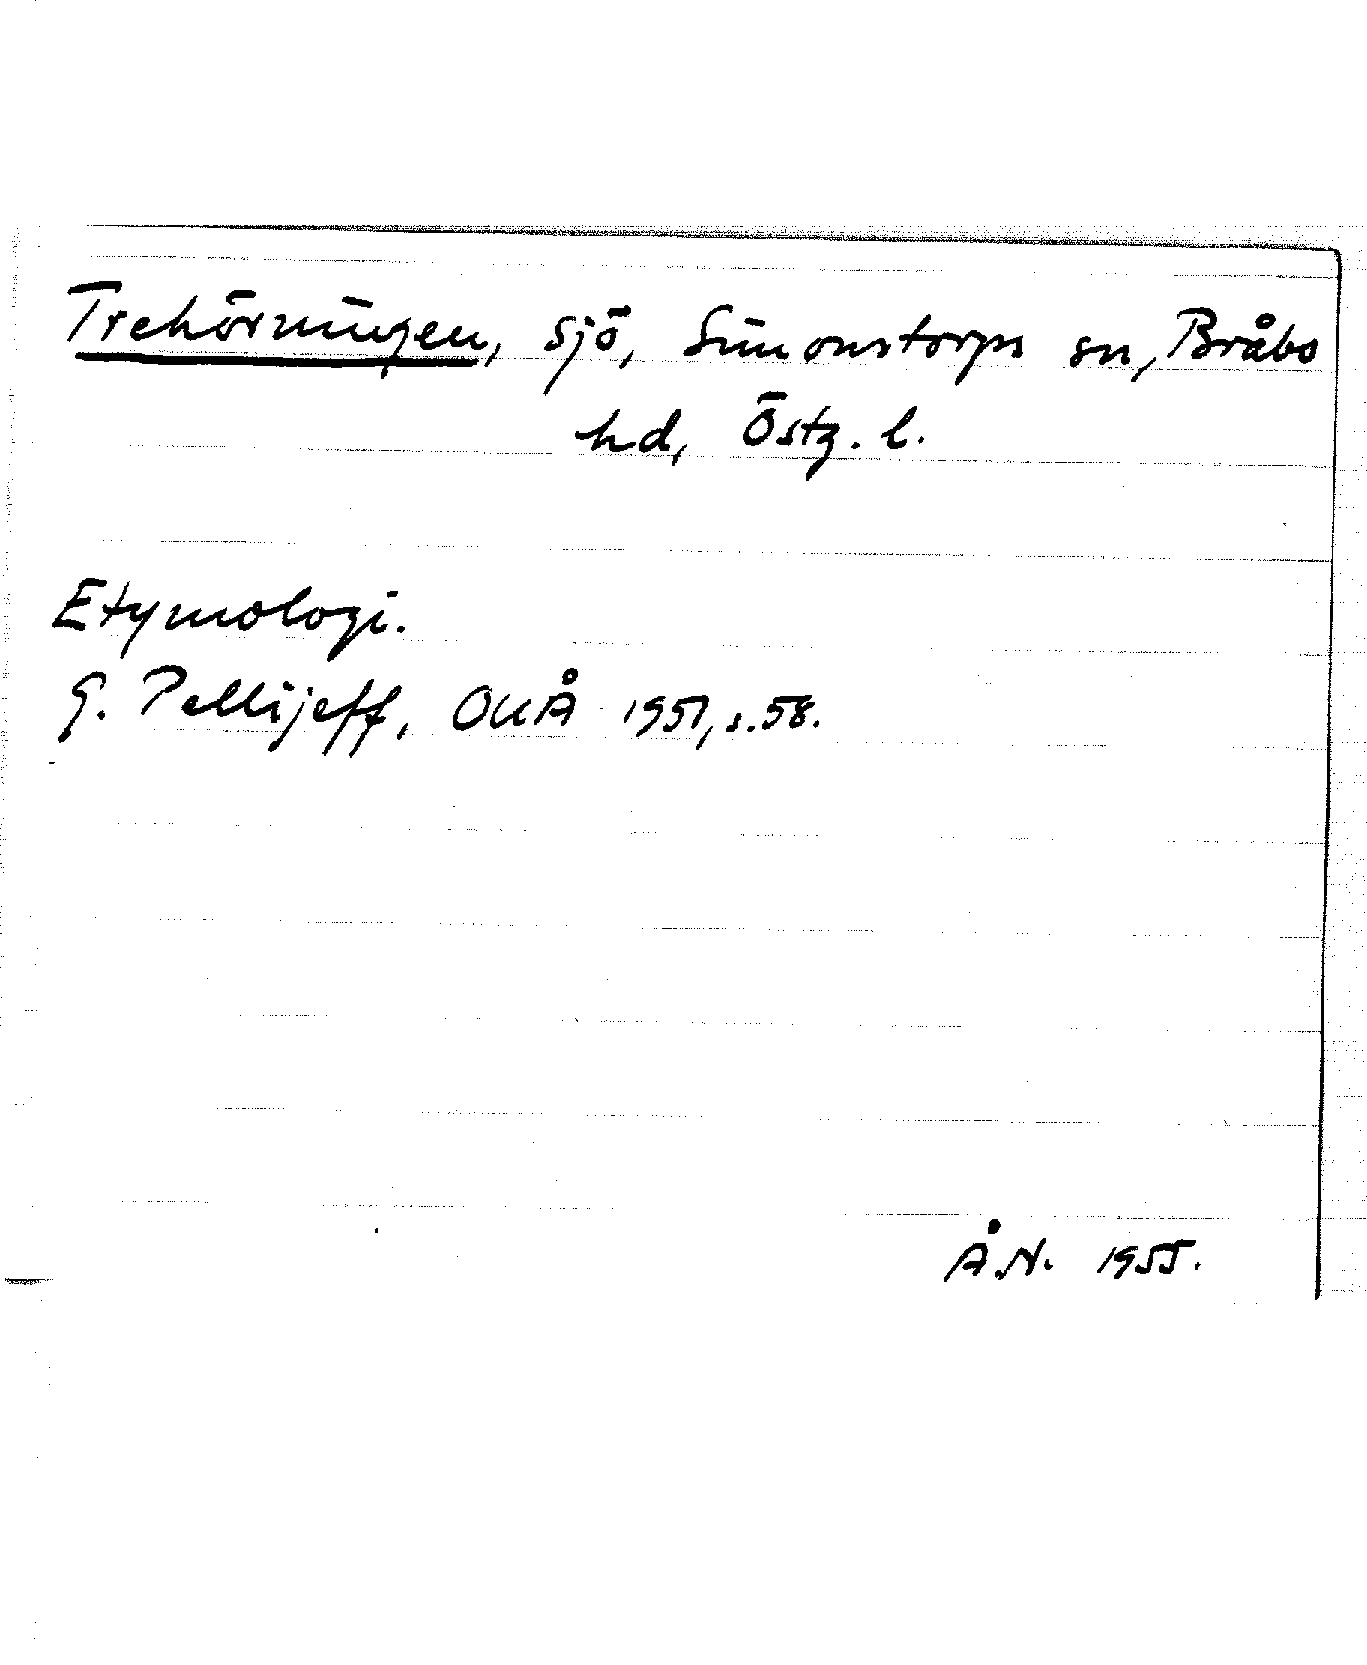 Trehörningen, sjö, Simonstorps sn, Bråbo
hd, Östg. l.
Etymologi.
G. Pellijeff, OUÅ 1951, s. 58.
Å.N. 1955.